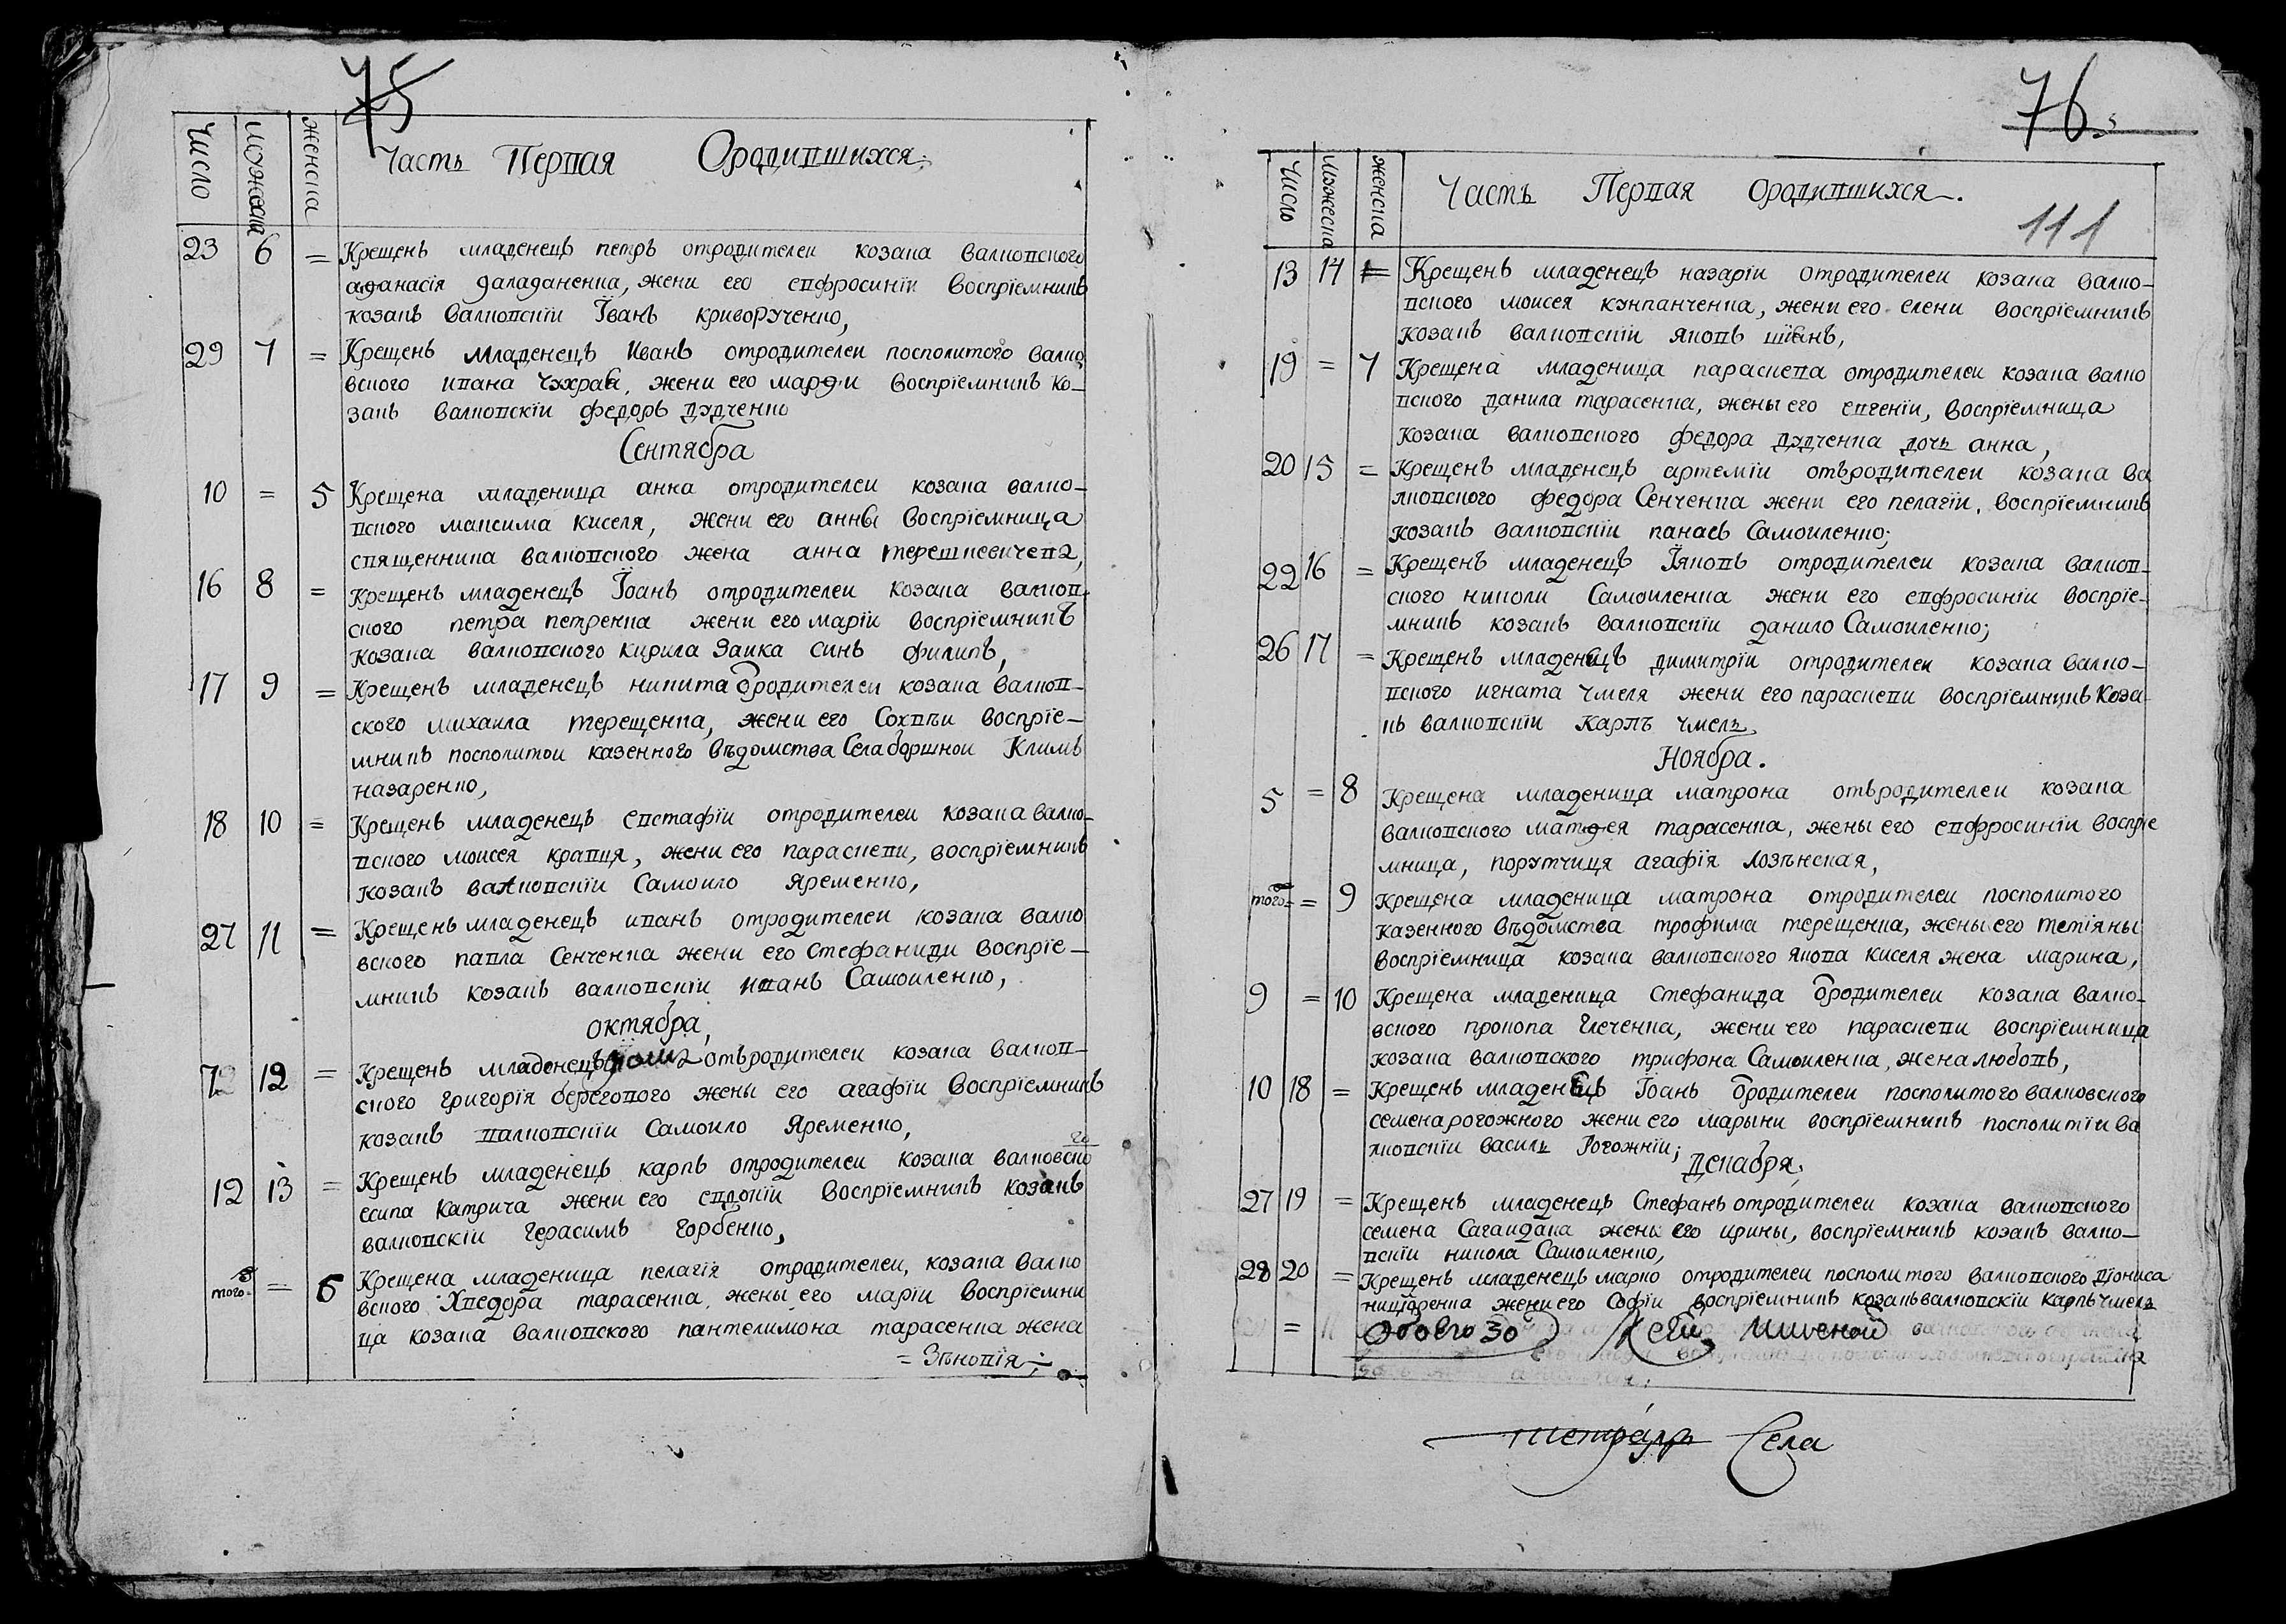 75
Число мужеска женска Часть Первая Ородившихся
23 6 = Крещенъ младенецъ петръ отродителеи козака валковского
афанасія галаганенка, жени его епфросиніи воспріемникъ
козакъ валковскіи Їванъ криворученко,
29 7 = Крещенъ младенецъ Иванъ отродителеи посполитого валко
вского ивана чухрая, жени его марфи воспріемникъ ко-
закъ валковскіи федоръ дудченко
Сентября
10 = 5 Крещена младеница анна отродителеи козака валко-
вского максима киселя, жени его анны воспріемница
священника валковского жена анна терешкевичева,
16 8 = Крещенъ младенецъ Їоанъ отродителеи козака валков-
ского петра петренка жени его маріи воспріемникъ
козака валковского кирила Заика синъ филипъ,
17 9 = Крещенъ младенецъ никита ѿродителеи козака валков-
ского михаила терещенка, жени его Сохвѣи воспріе-
мникъ посполитои казенного вѣдомства Села боршнои Климъ
назаренко,
18 10 = Крещенъ младенецъ евстафіи отродителеи козака валко-
вского моисея кравця, жени его параскеви, воспріемникъ
козакъ валковскіи Самоило Яременко,
27 11 = Крещенъ младенецъ иванъ отродителеи козака валко
вского павла Сенченка жени его Стефаниди воспріе-
мникъ козакъ валковскіи иванъ Самоиленко,
октября,
7 12 = Крещенъ младенецъ отъродителеи козака валков-
ского григорія берегового жены его агафіи воспріемникъ
козакъ валковскіи Самоило Яременко,
12 13 = Крещенъ младенецъ карпъ отродителеи козака валковско го
есипа катрича жени его евдокіи воспріемникъ козакъ
валковскіи герасимъ горбенко,
того= = 6 Крещена младеница пелагія отродителеи, козака валко
вского Хведора тарасенка, жены его маріи воспріемни
ца козака валковского пантелимона тарасенка жена
= Зѣновія;
76
Число мужеска женска Часть Первая Ородившихся.
111
13 14 = Крещенъ младенецъ назаріи отродителеи козака валко-
вского моисея кунпанченка, жени его елени воспріемникъ
козакъ валковскіи яковъ
19 = 7 Крещена младеница параскева отродителеи козака валко
вского данила тарасенка, жены его евгеніи, воспріемница
козака валковского федора дудченка дочь анна,
20 15 = Крещенъ младенецъ артеміи отъродителеи козака ва
лковского федора Сенченка жени его пелагіи, воспріемникъ
козакъ валковскіи панасъ Самоиленко;
22 16 = Крещенъ младенецъ Їяковъ отродителеи козака валков-
ского николи Самоиленка жени его епфросиніи воспріе-
мникъ козакъ валковскіи данило Самоиленко;
26 17 = Крещенъ младенецъ димитріи отродителеи козака валко-
вского игната чмеля жени его параскеви воспріемникъ Коза-
къ валковскіи Карпъ чмель,
Ноября.
5 = 8 Крещена младеница матрона отъродителеи козака
валковского матфея тарасенка, жены его епфросиніи воспріе
мница, порутчиця агафія лозѣнская,
того= = 9 Крещена младеница матрона отродителеи посполитого
казенного вѣдомства трофима терещенка, жены его тетіяны
воспріемница козака валковского якова киселя жена марина,
9 = 10 Крещена младеница Стефанида ѿродителеи козака валко-
вского прокопа Ілеченка, жени его параскеви воспріемница
козака валковского трифона Самоиленка, жена любовъ,
10 18 = Крещенъ младенецъ Їоанъ ѿродителеи посполитого валковского
семена рогожного жени его марыни воспріемникъ посполитіи ва
лковскіи василь Рогожніи;
Декабря,
27 19 = Крещенъ младенецъ Стефанъ отродителеи козака валковского
семена Сагаидака жены его ирины, воспріемникъ козакъ валко-
вскіи никола Самоиленко,
28 20 = Крещенъ младенецъ марко отродителеи посполитого валковского Діониса
жени его Софіи воспріемникъ козакъ валковскіи Карпъ чмель
= обоего 30
Села